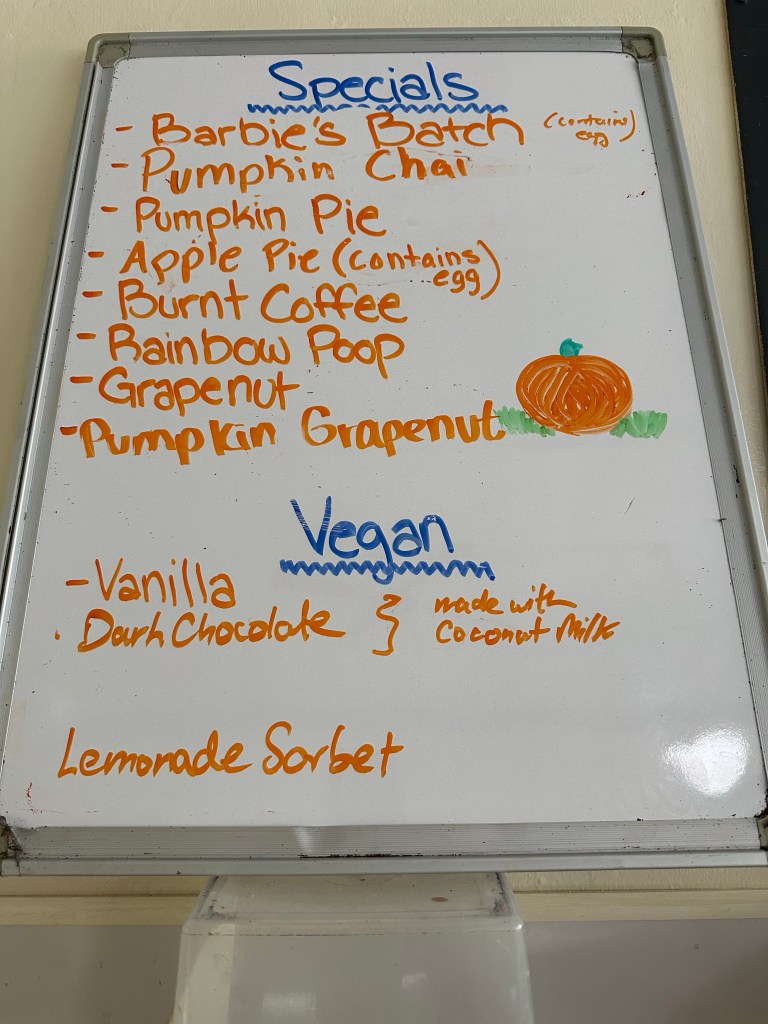 Specials
- Barbie's Batch (contains egg)
- Pumpkin Chai
- Pumpkin Pie
- Apple Pie (contains egg)
- Burnt Coffee
- Rainbow Poop
- Grapenut
- Pumpkin Grapenut
Vegan
- Vanilla
. Dark Chocolate } made with Coconut Milk
Lemonade Sorbet